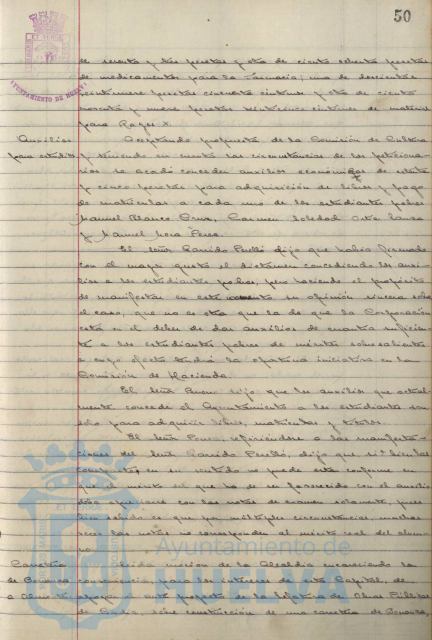 50
AYUNTAMIENTO DE HUELVA
de sesenta y tres pesetas y otra de ciento ochenta pesetas
de medicamentos para la Farmacia; una de doscientas
pesetas cincuenta céntimos y otra de ciento
noventa y nueve pesetas céntimos de material
para Rayos X.
Auxilios para estudios
Aceptando propuesta de la Comisión de Cultura
y teniendo en cuenta las circunstancias de los peticiona-
rios se acordó conceder auxilios económicos de
y cinco pesetas para adquisición de libros y pago
de matrículas a cada uno de los estudiantes pobres
Manuel Blanco Cruz, Carmen Soledad
y Manuel Mora Pérez.
El señor Garrido Perelló dijo que había firmado
con el mayor gusto el dictamen concediendo los auxi-
lios a los estudiantes pobres, pero haciendo el propósito
de manifestar en este momento su opinión sincera sobre
el caso, que no es otra que la de que la Corporación
está en el deber de dar auxilios de cuantía suficien-
te a los estudiantes pobres de méritos sobresalientes
a cuyo efecto tendrá la oportuna iniciativa en la
Comisión de Hacienda.
El señor dijo que los auxilios que actual-
mente concede el Ayuntamiento a los estudiantes son
solo para adquirir libros, matrículas y títulos.
El señor Ponce, refiriéndose a las manifesta-
ciones del señor Garrido Perelló, dijo que si bien las
comparte en su no puede estar conforme en
que el mérito del que ha de ser favorecido con el auxilio
con las notas de examen solamente, pues
es que por múltiples circunstancias, muchas
veces las notas no corresponden al mérito real del alum-
no.
Carretera de Bonanza a
Leída moción de la Alcaldía encareciendo la
conveniencia para los intereses de esta Capital, de
apoyar el ante proyecto de la Jefatura de Obras Públicas
de Cádiz, sobre construcción de una carretera de Bonanza,
Ayuntamiento de
HUELVA